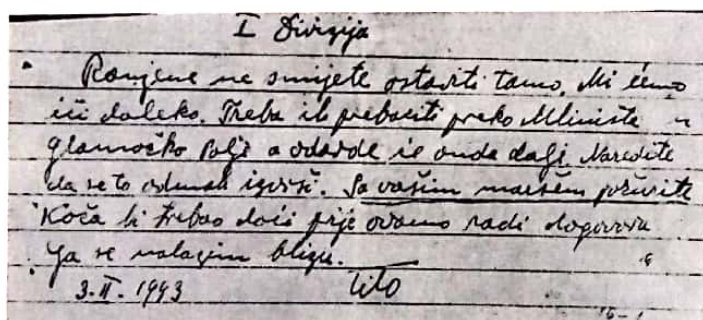 I Divizija
Ranjene ne smijete ostaviti tamo. Mi ćemo
ići daleko. Treba ih prebaciti preko Mliništa u
glamočko polje a odavde ie onda dalje. Naredite
da se to odmah izvrši. Sa vašim maršem požurite
Koča bi trebao doći prije ovamo radi dogovora
Ja se nalazim blizu.
3. II. 1943 Tito